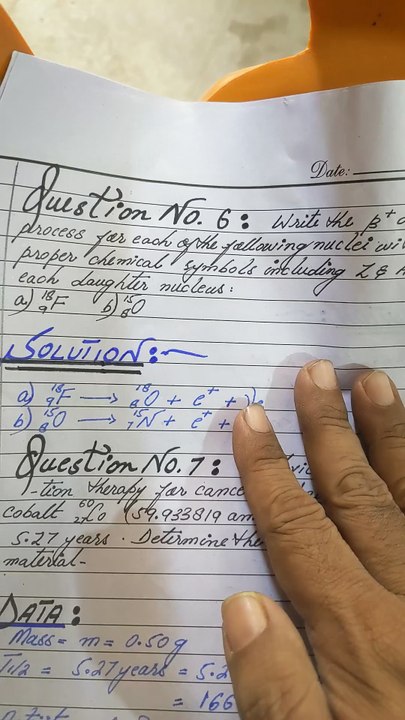 Date:
Question No. 6: Write the β⁺
process for each of the following nuclei
proper chemical symbols including Z &
each daughter nucleus:
a) ¹⁸₉F b) ¹⁵₈O
SOLUTION:-
a) ¹⁸₉F → ¹⁸₈O + e⁺ +
b) ¹⁵₈O → ¹⁵₇N + e⁺ +
Question No. 7:
-tion therapy for
cobalt ⁶⁰₂₇Co (59.933819
5.27 years. Determine the
material-
DATA:
Mass = m = 0.50 g
T1/2 = 5.27 years = 5.2
= 166